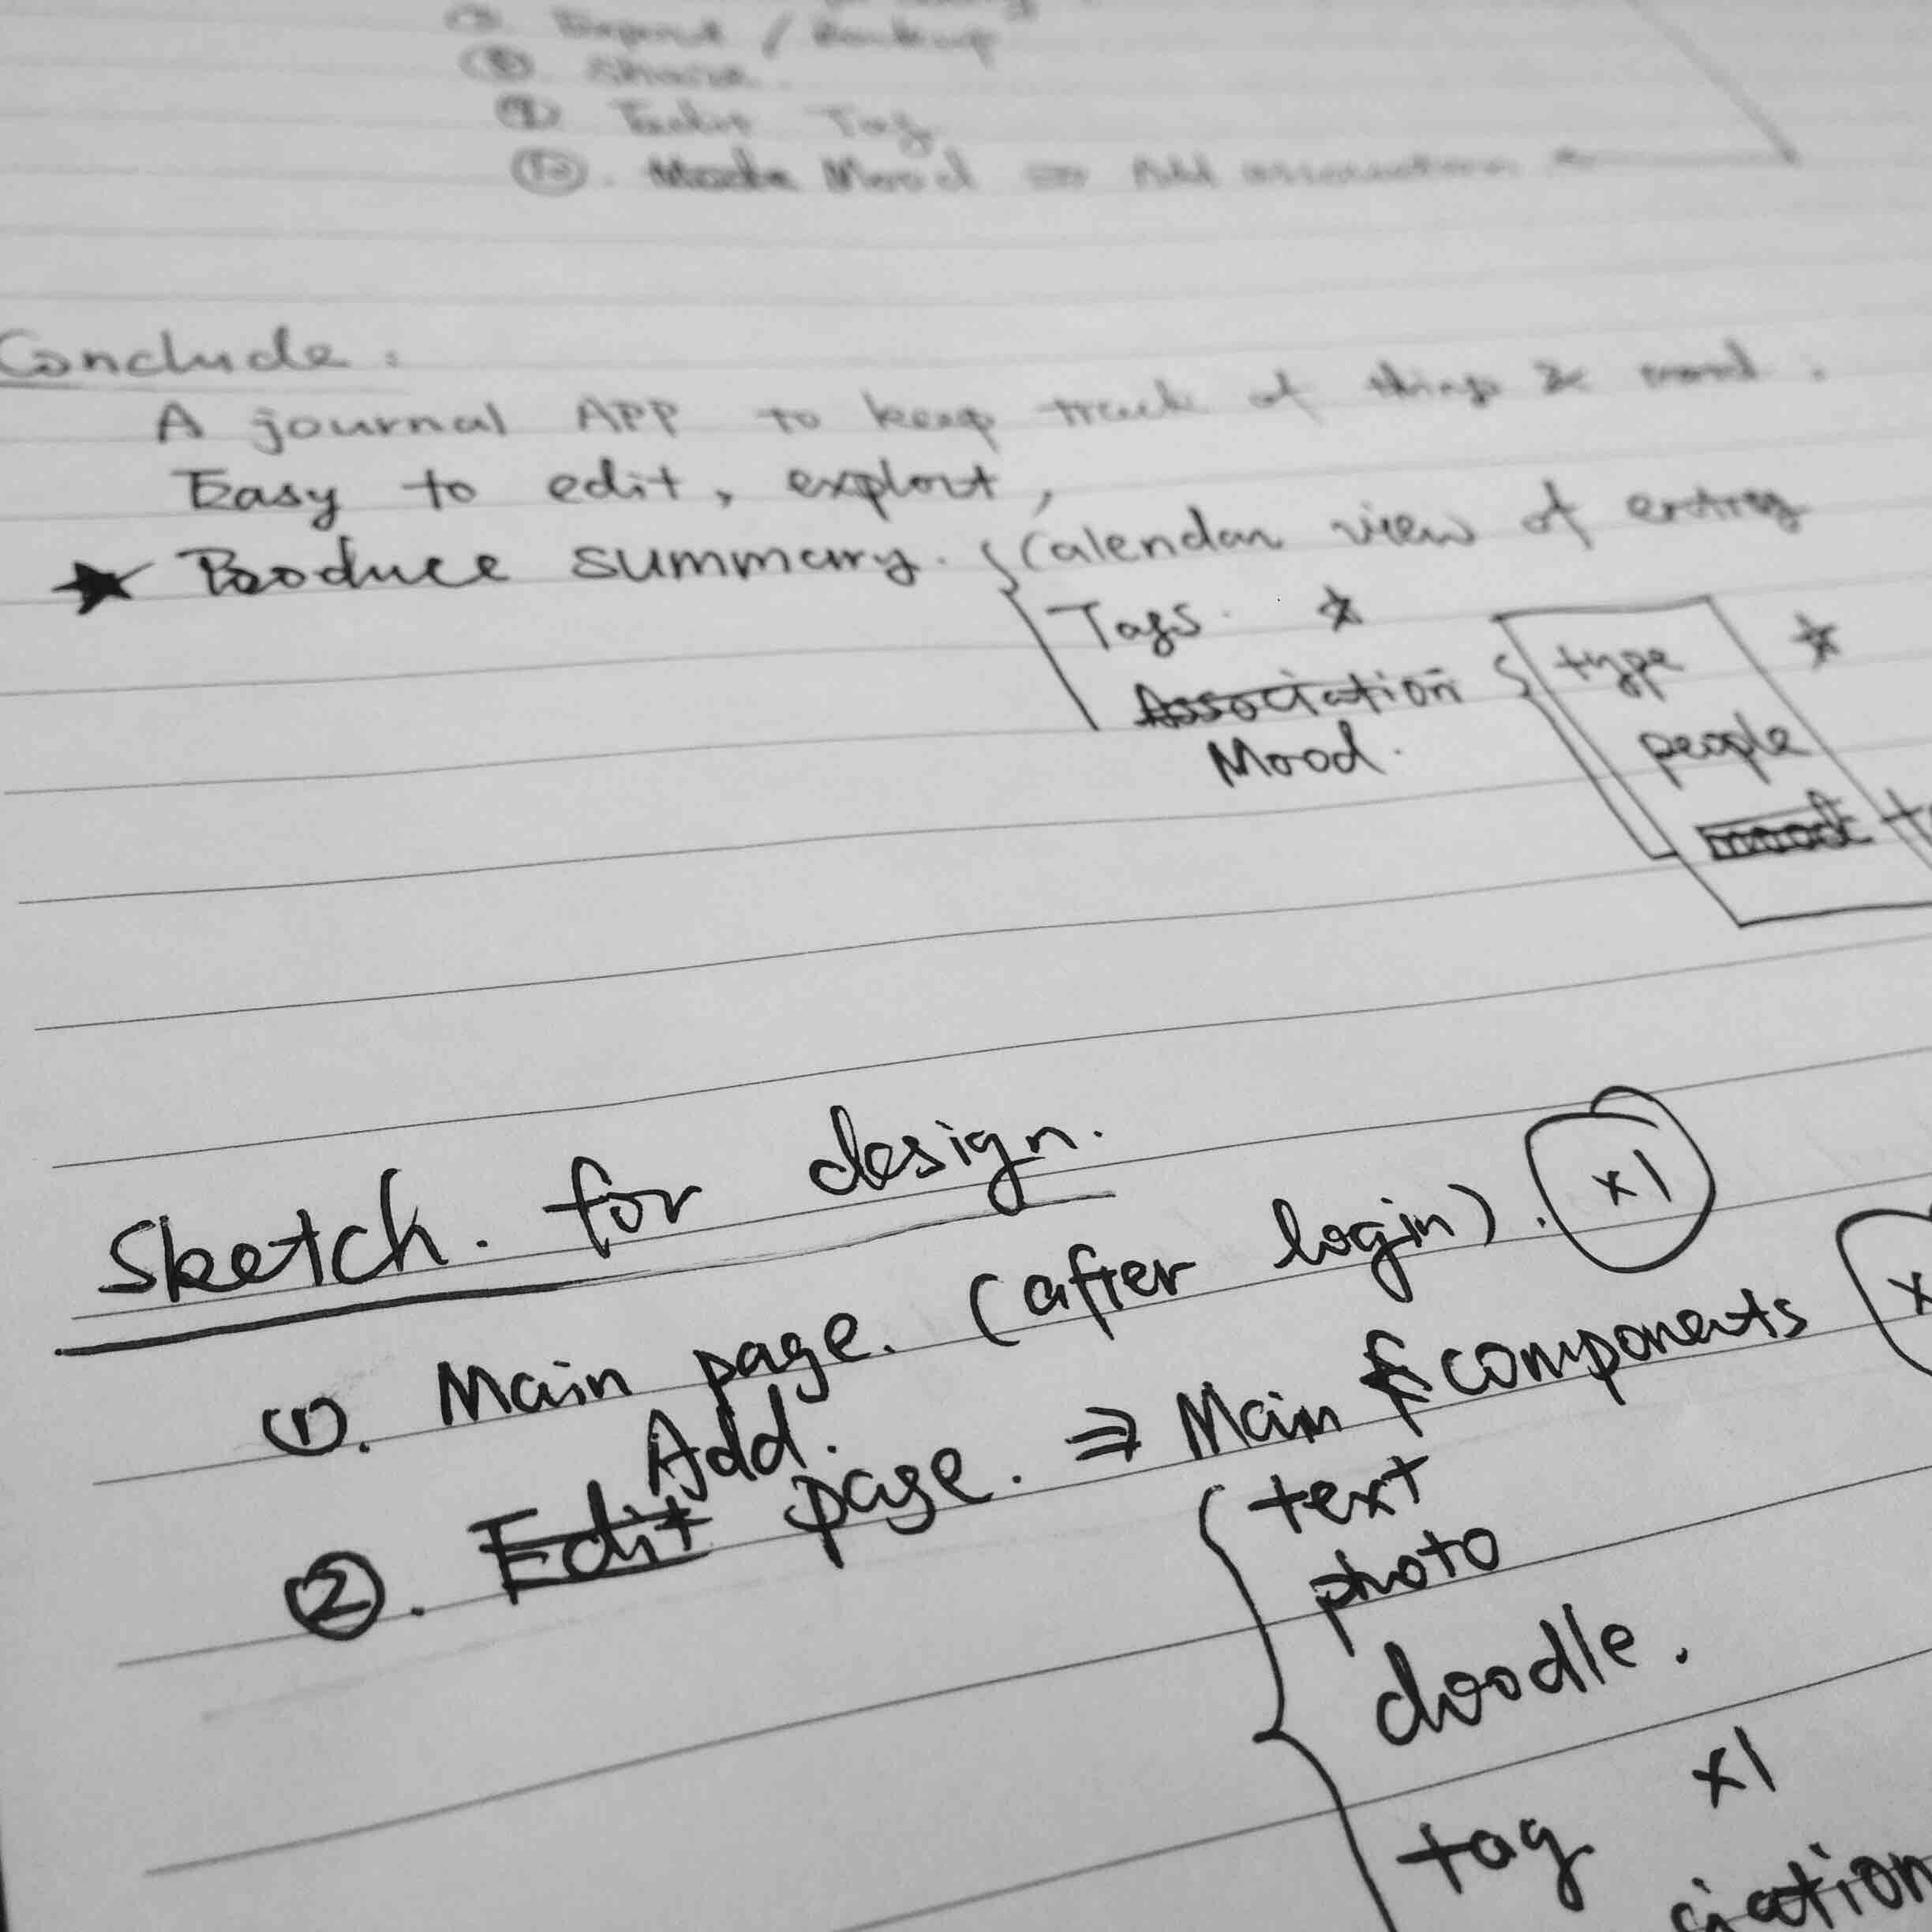 Export / Backup
⑧ Share
⑨ Tag
⑩. Mood ⇒ Add association ←
Conclude:
A journal APP to keep track of things & mood.
Easy to edit, explort,
★ Produce summary. { Calendar view of entry
Tags. ☆
Association { type ☆
Mood. people
mood
Sketch. for design.
①. Main page. (after login). x1
Add.
②. Edit page. ⇒ Main components x
{ text
photo
doodle.
tag x1
ciation